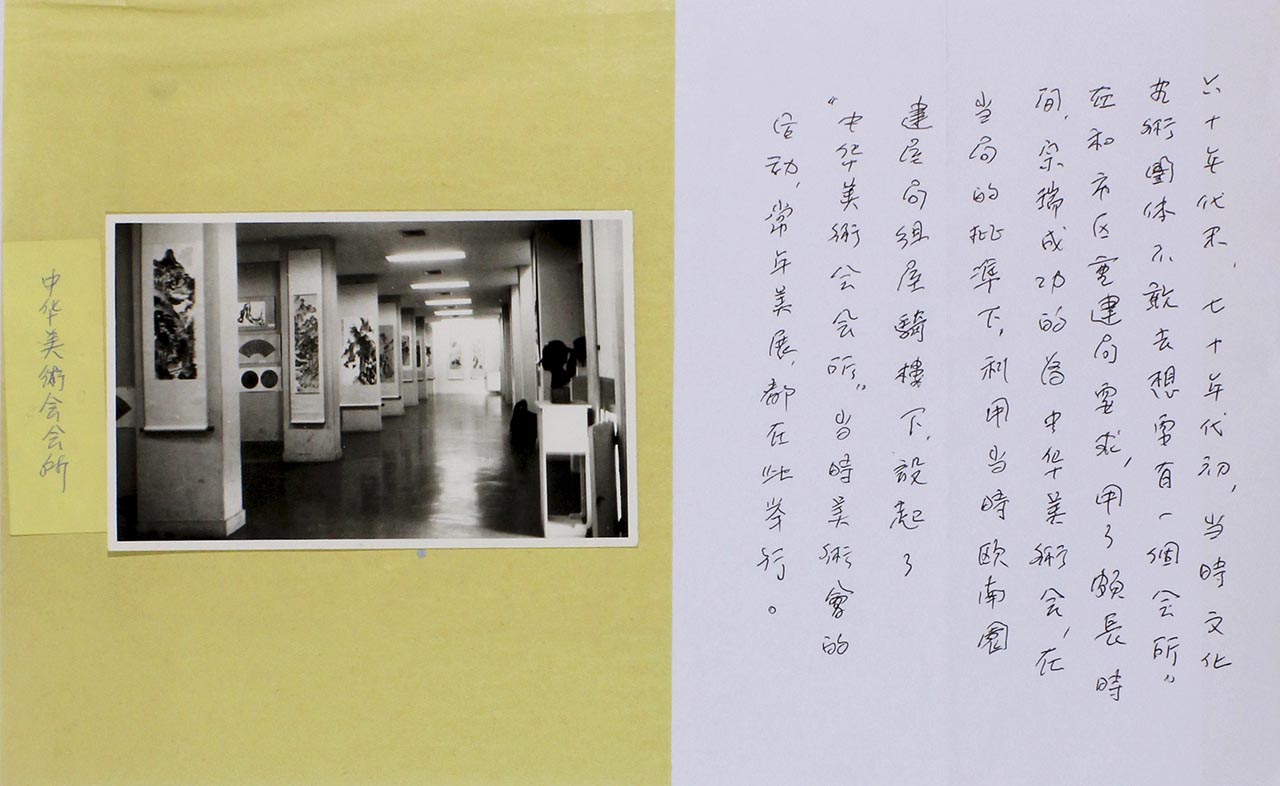 六十年代末，七十年代初，当時文化
艺術團体不敢去想要有一個会所。
在和市区重建局要求，用了頗長時
间，宗瑞成功的為中华美術会，在
当局的批準下，利用当時欧南園
建屋局组屋騎樓下，設起了
“中华美術会会所”当時美術會的
活动，常年美展，都在此举行。
中华美術会会所